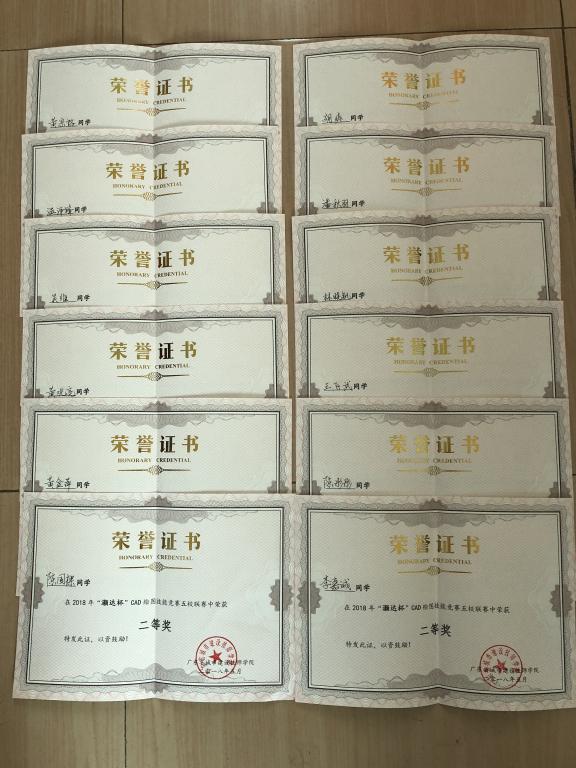 荣誉证书
HONORARY CREDENTIAL
同学
荣誉证书
HONORARY CREDENTIAL
同学
荣誉证书
HONORARY CREDENTIAL
同学
荣誉证书
HONORARY CREDENTIAL
黄晓亮同学
荣誉证书
HONORARY CREDENTIAL
黄金萍同学
荣誉证书
HONORARY CREDENTIAL
陈国樑同学
在2018年“灏达杯”CAD绘图技能竞赛五校联赛中荣获
二等奖
特发此证，以资鼓励！
广东省城市建设技师学院
二〇一八年五月
荣誉证书
HONORARY CREDENTIAL
胡森同学
荣誉证书
HONORARY CREDENTIAL
潘秋羽同学
荣誉证书
HONORARY CREDENTIAL
同学
荣誉证书
HONORARY CREDENTIAL
同学
荣誉证书
HONORARY CREDENTIAL
陈彤彤同学
荣誉证书
HONORARY CREDENTIAL
李嘉诚同学
在2018年“灏达杯”CAD绘图技能竞赛五校联赛中荣获
二等奖
特发此证，以资鼓励！
广东省城市建设技师学院
二〇一八年五月